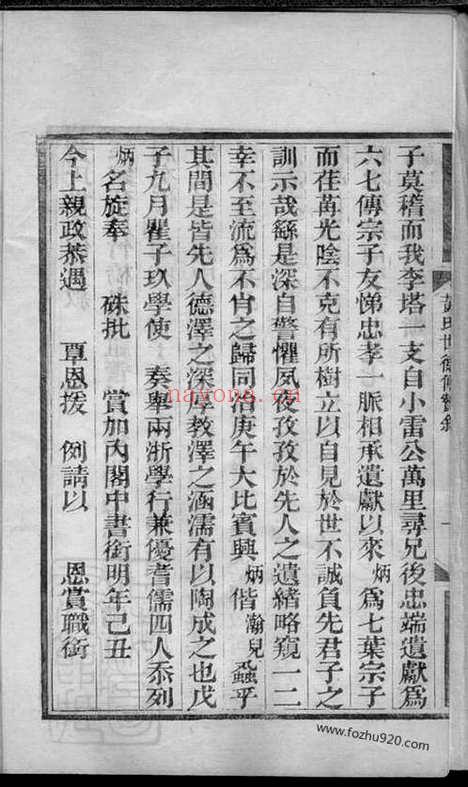 子莫稽而我李塔一支自小雷公萬里尋兄後忠端遺獻爲
六七傳宗子友悌忠孝一脈相承遺獻以來炳爲七葉宗子
而荏苒光陰不克有所樹立以自見於世不誠負先君子之
訓示哉繇是深自警懼夙夜孜孜於先人之遺緒略窺一二
幸不至流爲不肖之歸同治庚午大比賓興炳偕瀚兒蝨乎
其間是皆先人德澤之深厚教澤之涵濡有以陶成之也戊
子九月瞿子玖學使奏舉兩浙學行兼優耆儒四人忝列
炳名旋奉硃批賞加內閣中書銜明年己丑
今上親政恭遇覃恩援例請以恩賞職銜
黃氏世德傳贊
nayona.cn
www.fozhu920.com